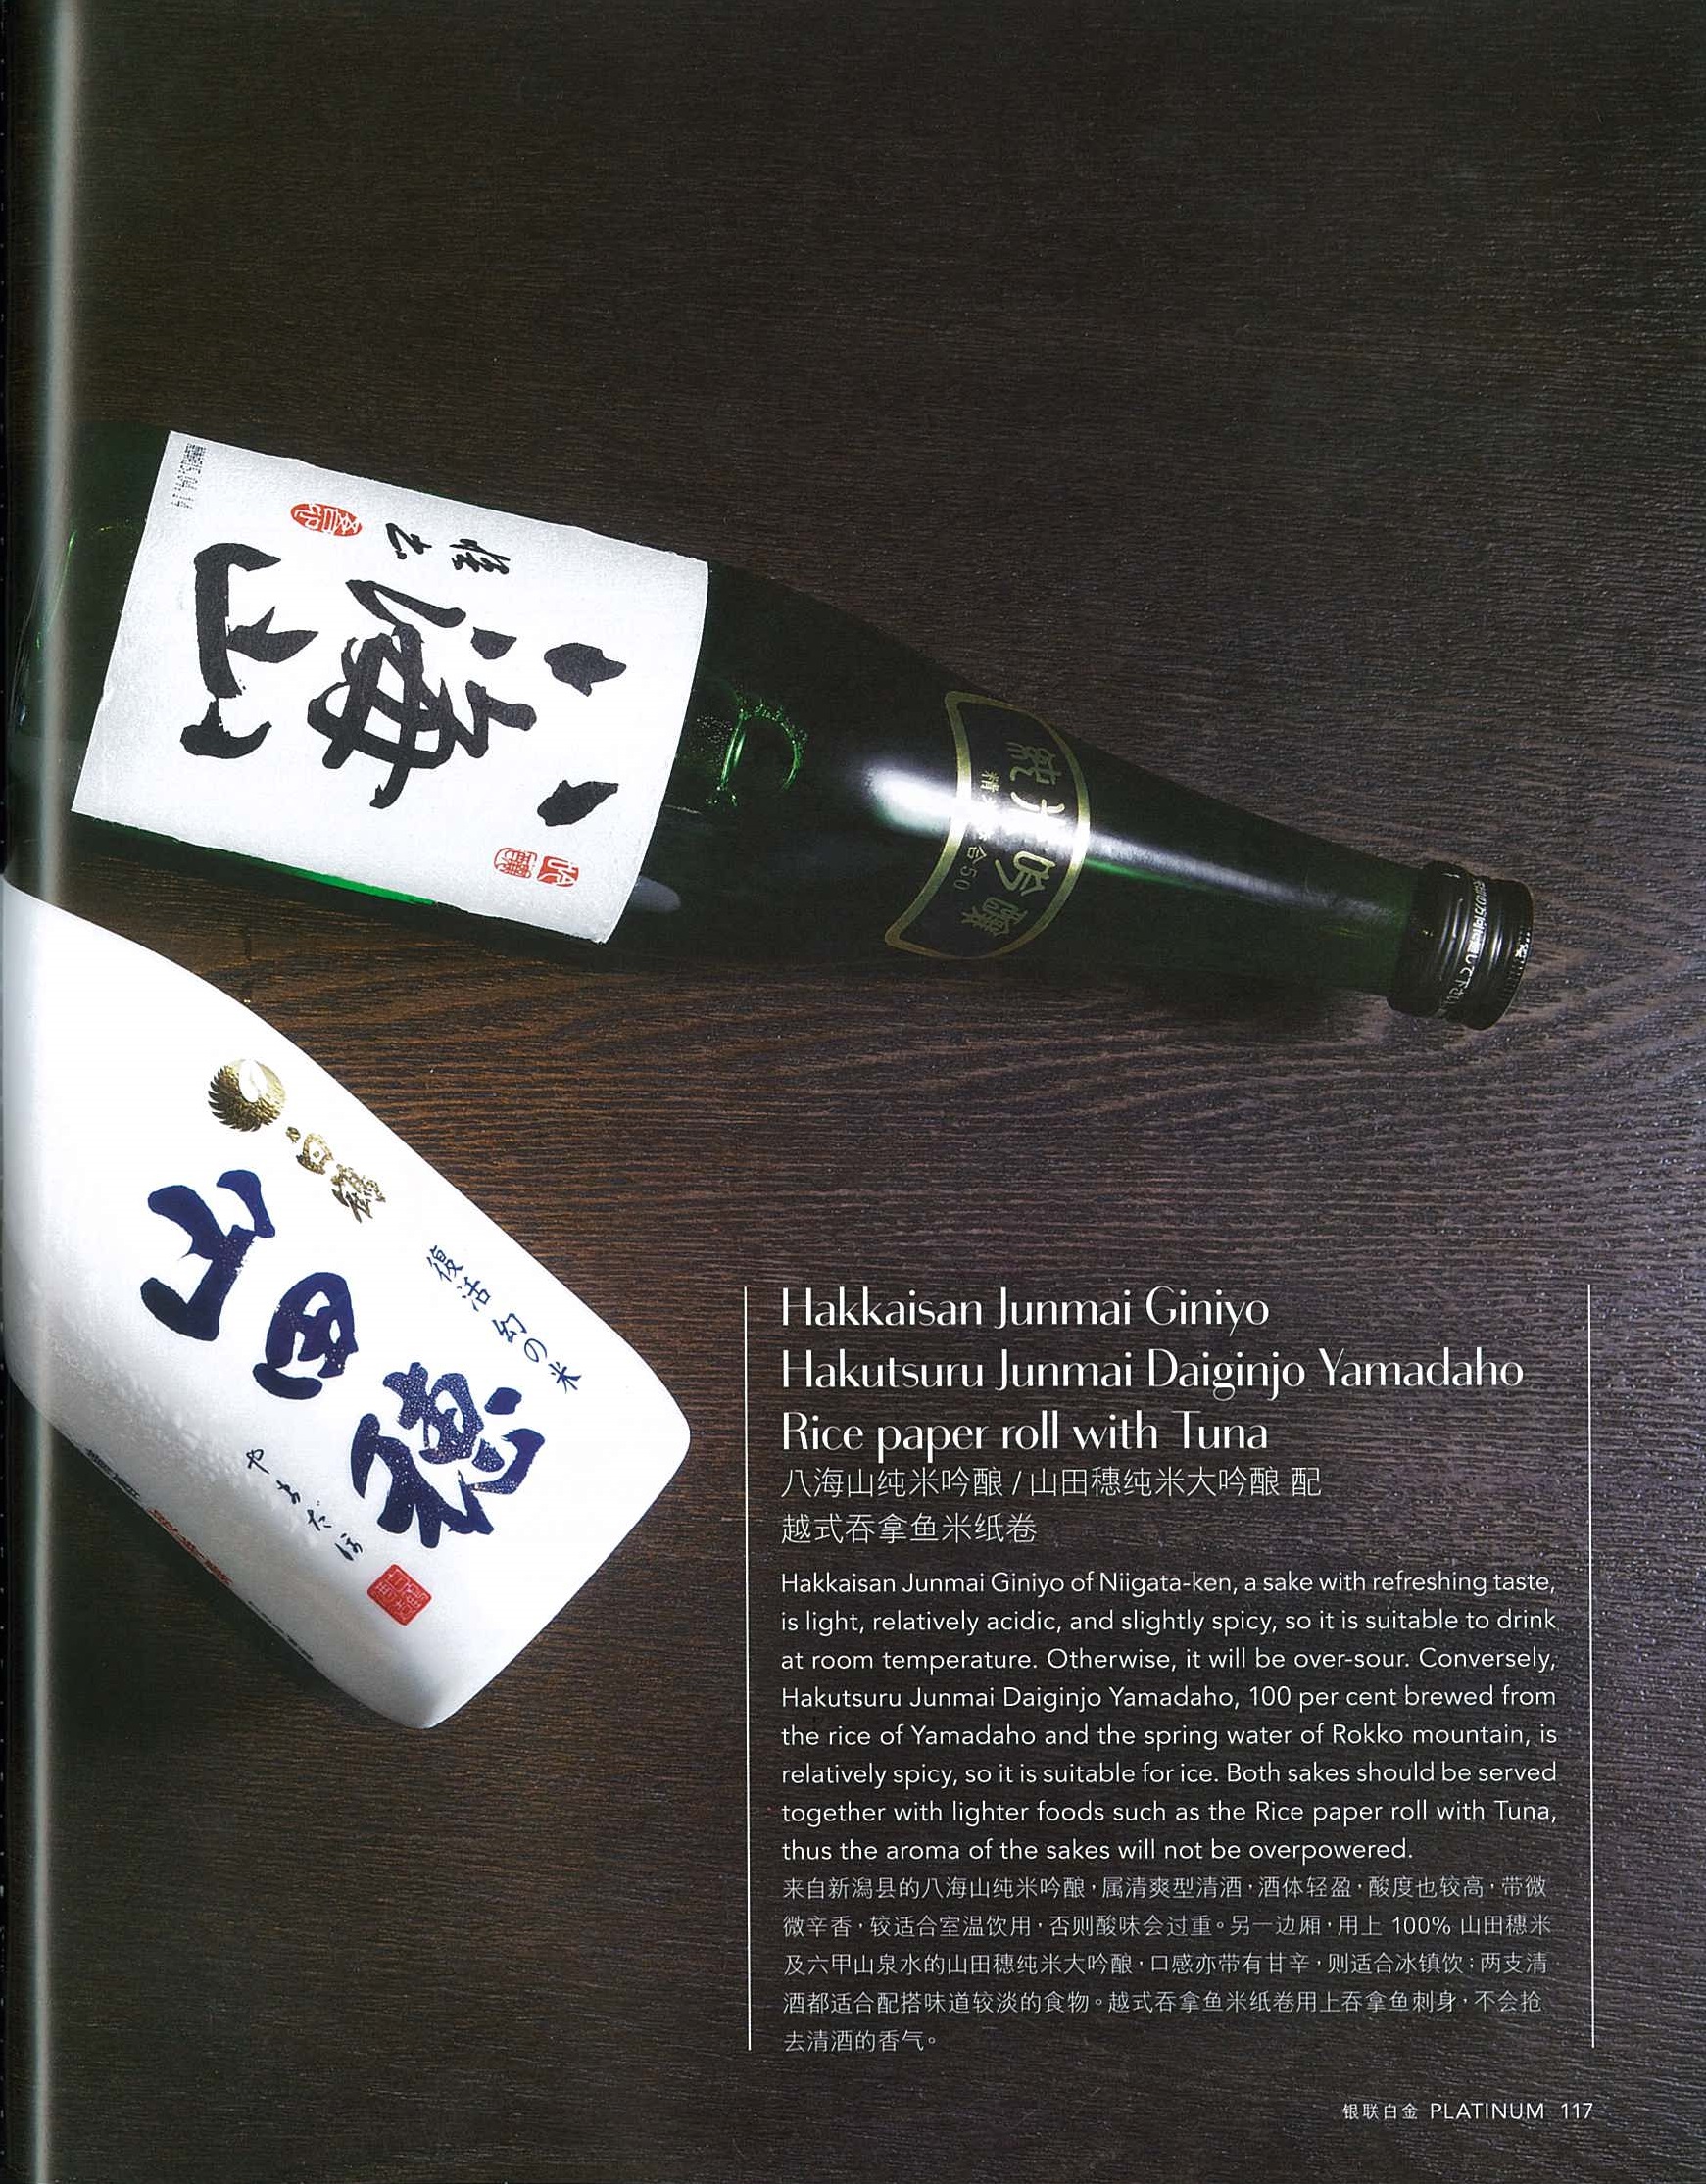 八海山
吟醸
純米吟醸
白鶴
復活 幻の米
山田穂
やまだほ
Hakkaisan Junmai Giniyo
Hakutsuru Junmai Daiginjo Yamadaho
Rice paper roll with Tuna
八海山纯米吟酿 / 山田穗纯米大吟酿 配
越式吞拿鱼米纸卷
Hakkaisan Junmai Giniyo of Niigata-ken, a sake with refreshing taste,
is light, relatively acidic, and slightly spicy, so it is suitable to drink
at room temperature. Otherwise, it will be over-sour. Conversely,
Hakutsuru Junmai Daiginjo Yamadaho, 100 per cent brewed from
the rice of Yamadaho and the spring water of Rokko mountain, is
relatively spicy, so it is suitable for ice. Both sakes should be served
together with lighter foods such as the Rice paper roll with Tuna,
thus the aroma of the sakes will not be overpowered.
来自新潟县的八海山纯米吟酿，属清爽型清酒，酒体轻盈，酸度也较高，带微
微辛香，较适合室温饮用，否则酸味会过重。另一边厢，用上 100% 山田穗米
及六甲山泉水的山田穗纯米大吟酿，口感亦带有甘辛，则适合冰镇饮；两支清
酒都适合配搭味道较淡的食物。越式吞拿鱼米纸卷用上吞拿鱼刺身，不会抢
去清酒的香气。
银联白金 PLATINUM 117